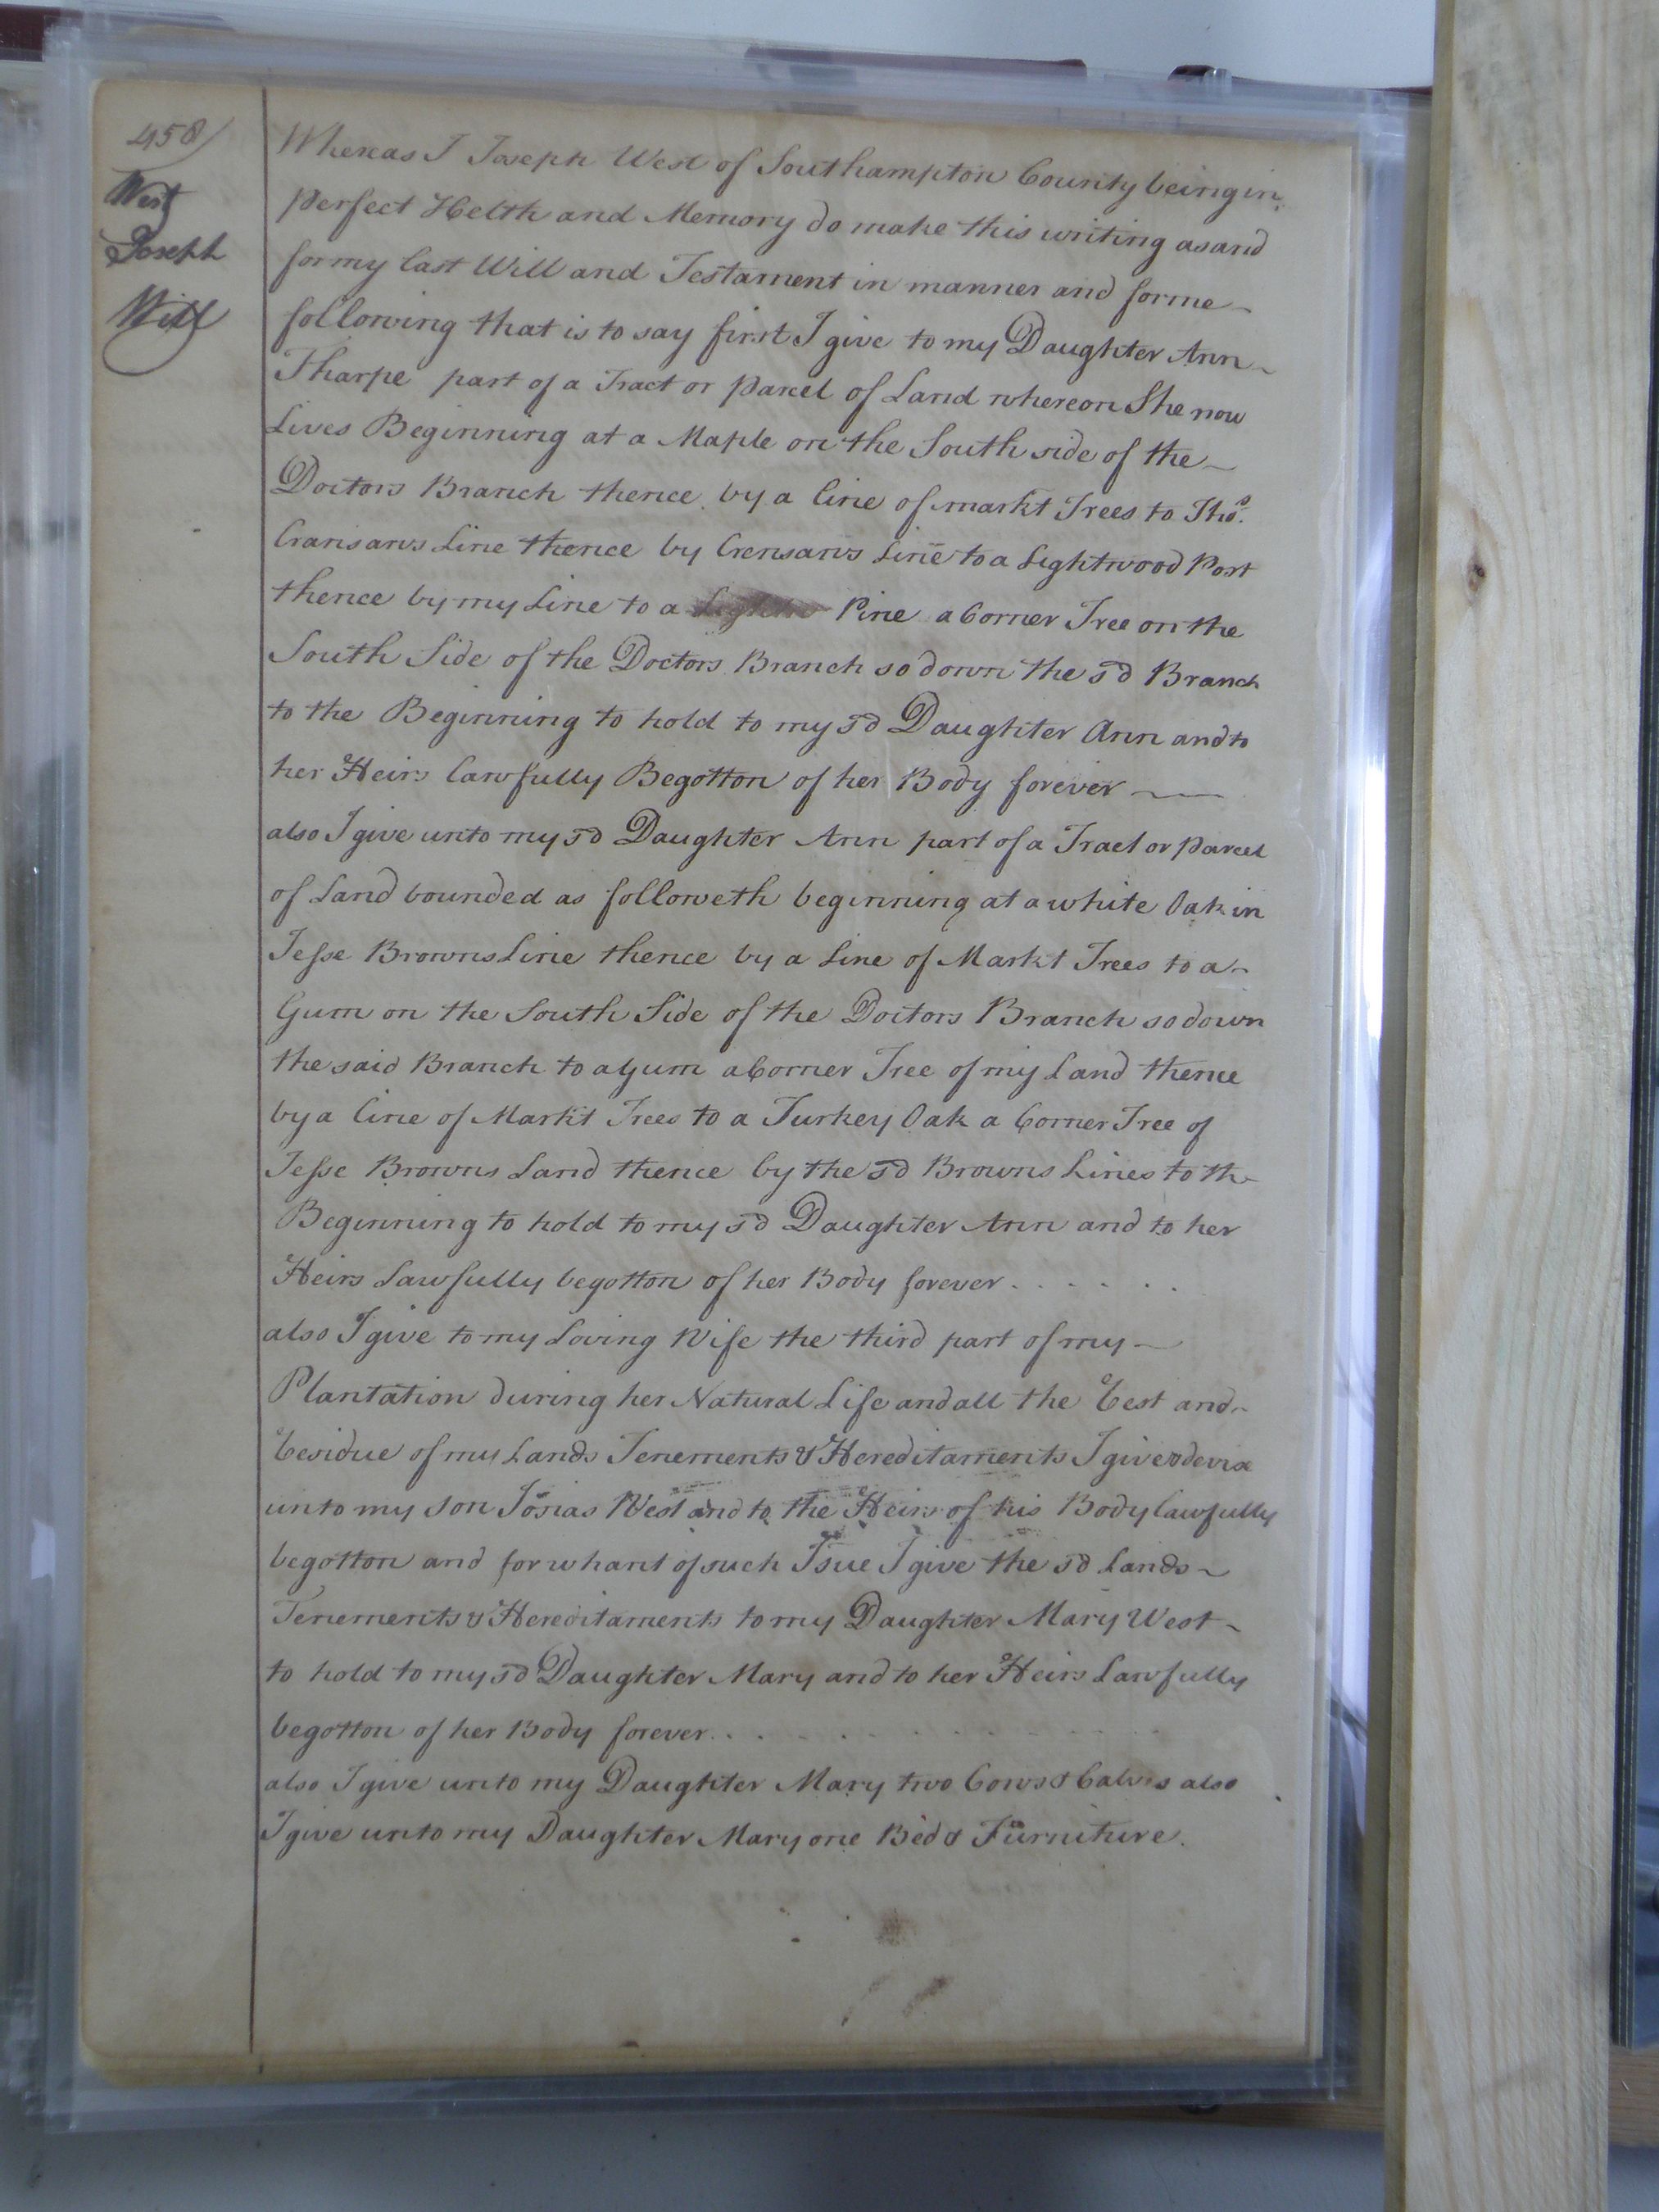 458/
West
Joseph
Will
Whereas I Joseph West of Southampton County being in
perfect Helth and Memory do make this writing as and
for my last Will and Testament in manner and forme
following that is to say first I give to my Daughter Ann
Tharpe part of a Tract or parcel of Land whereon She now
Lives Beginning at a Maple on the South side of the
Doctors Branch thence by a line of markt Trees to Thos.
Cransans Line thence by Crensans Line to a Lightwood Post
thence by my Line to a Pine a Corner Tree on the
South Side of the Doctors Branch so down the sd Branch
to the Beginning to hold to my sd Daughter Ann and to
her Heirs lawfully Begotton of her Body forever
also I give unto my sd Daughter Ann part of a Tract or parcel
of Land bounded as followeth beginning at a white Oak in
Jesse Browns Line thence by a Line of Markt Trees to a
Gum on the South Side of the Doctors Branch so down
the said Branch to a Gum a Corner Tree of my Land thence
by a line of Markt Trees to a Turkey Oak a Corner Tree of
Jesse Browns Land thence by the sd Browns Lines to the
Beginning to hold to my sd Daughter Ann and to her
Heirs Lawfully begotton of her Body forever . . . . . .
also I give to my Loving Wife the third part of my
Plantation during her Natural Life and all the Rest and
Residue of my Lands Tenements & Hereditaments I give & devise
unto my son Josias West and to the Heirs of his Body lawfully
begotton and for whant of such Isue I give the sd Lands
Tenements & Hereditaments to my Daughter Mary West
to hold to my sd Daughter Mary and to her Heirs Lawfully
begotton of her Body forever. . . . . . . . .
also I give unto my Daughter Mary two Cows & Calves also
I give unto my Daughter Mary one Bed & Furniture.